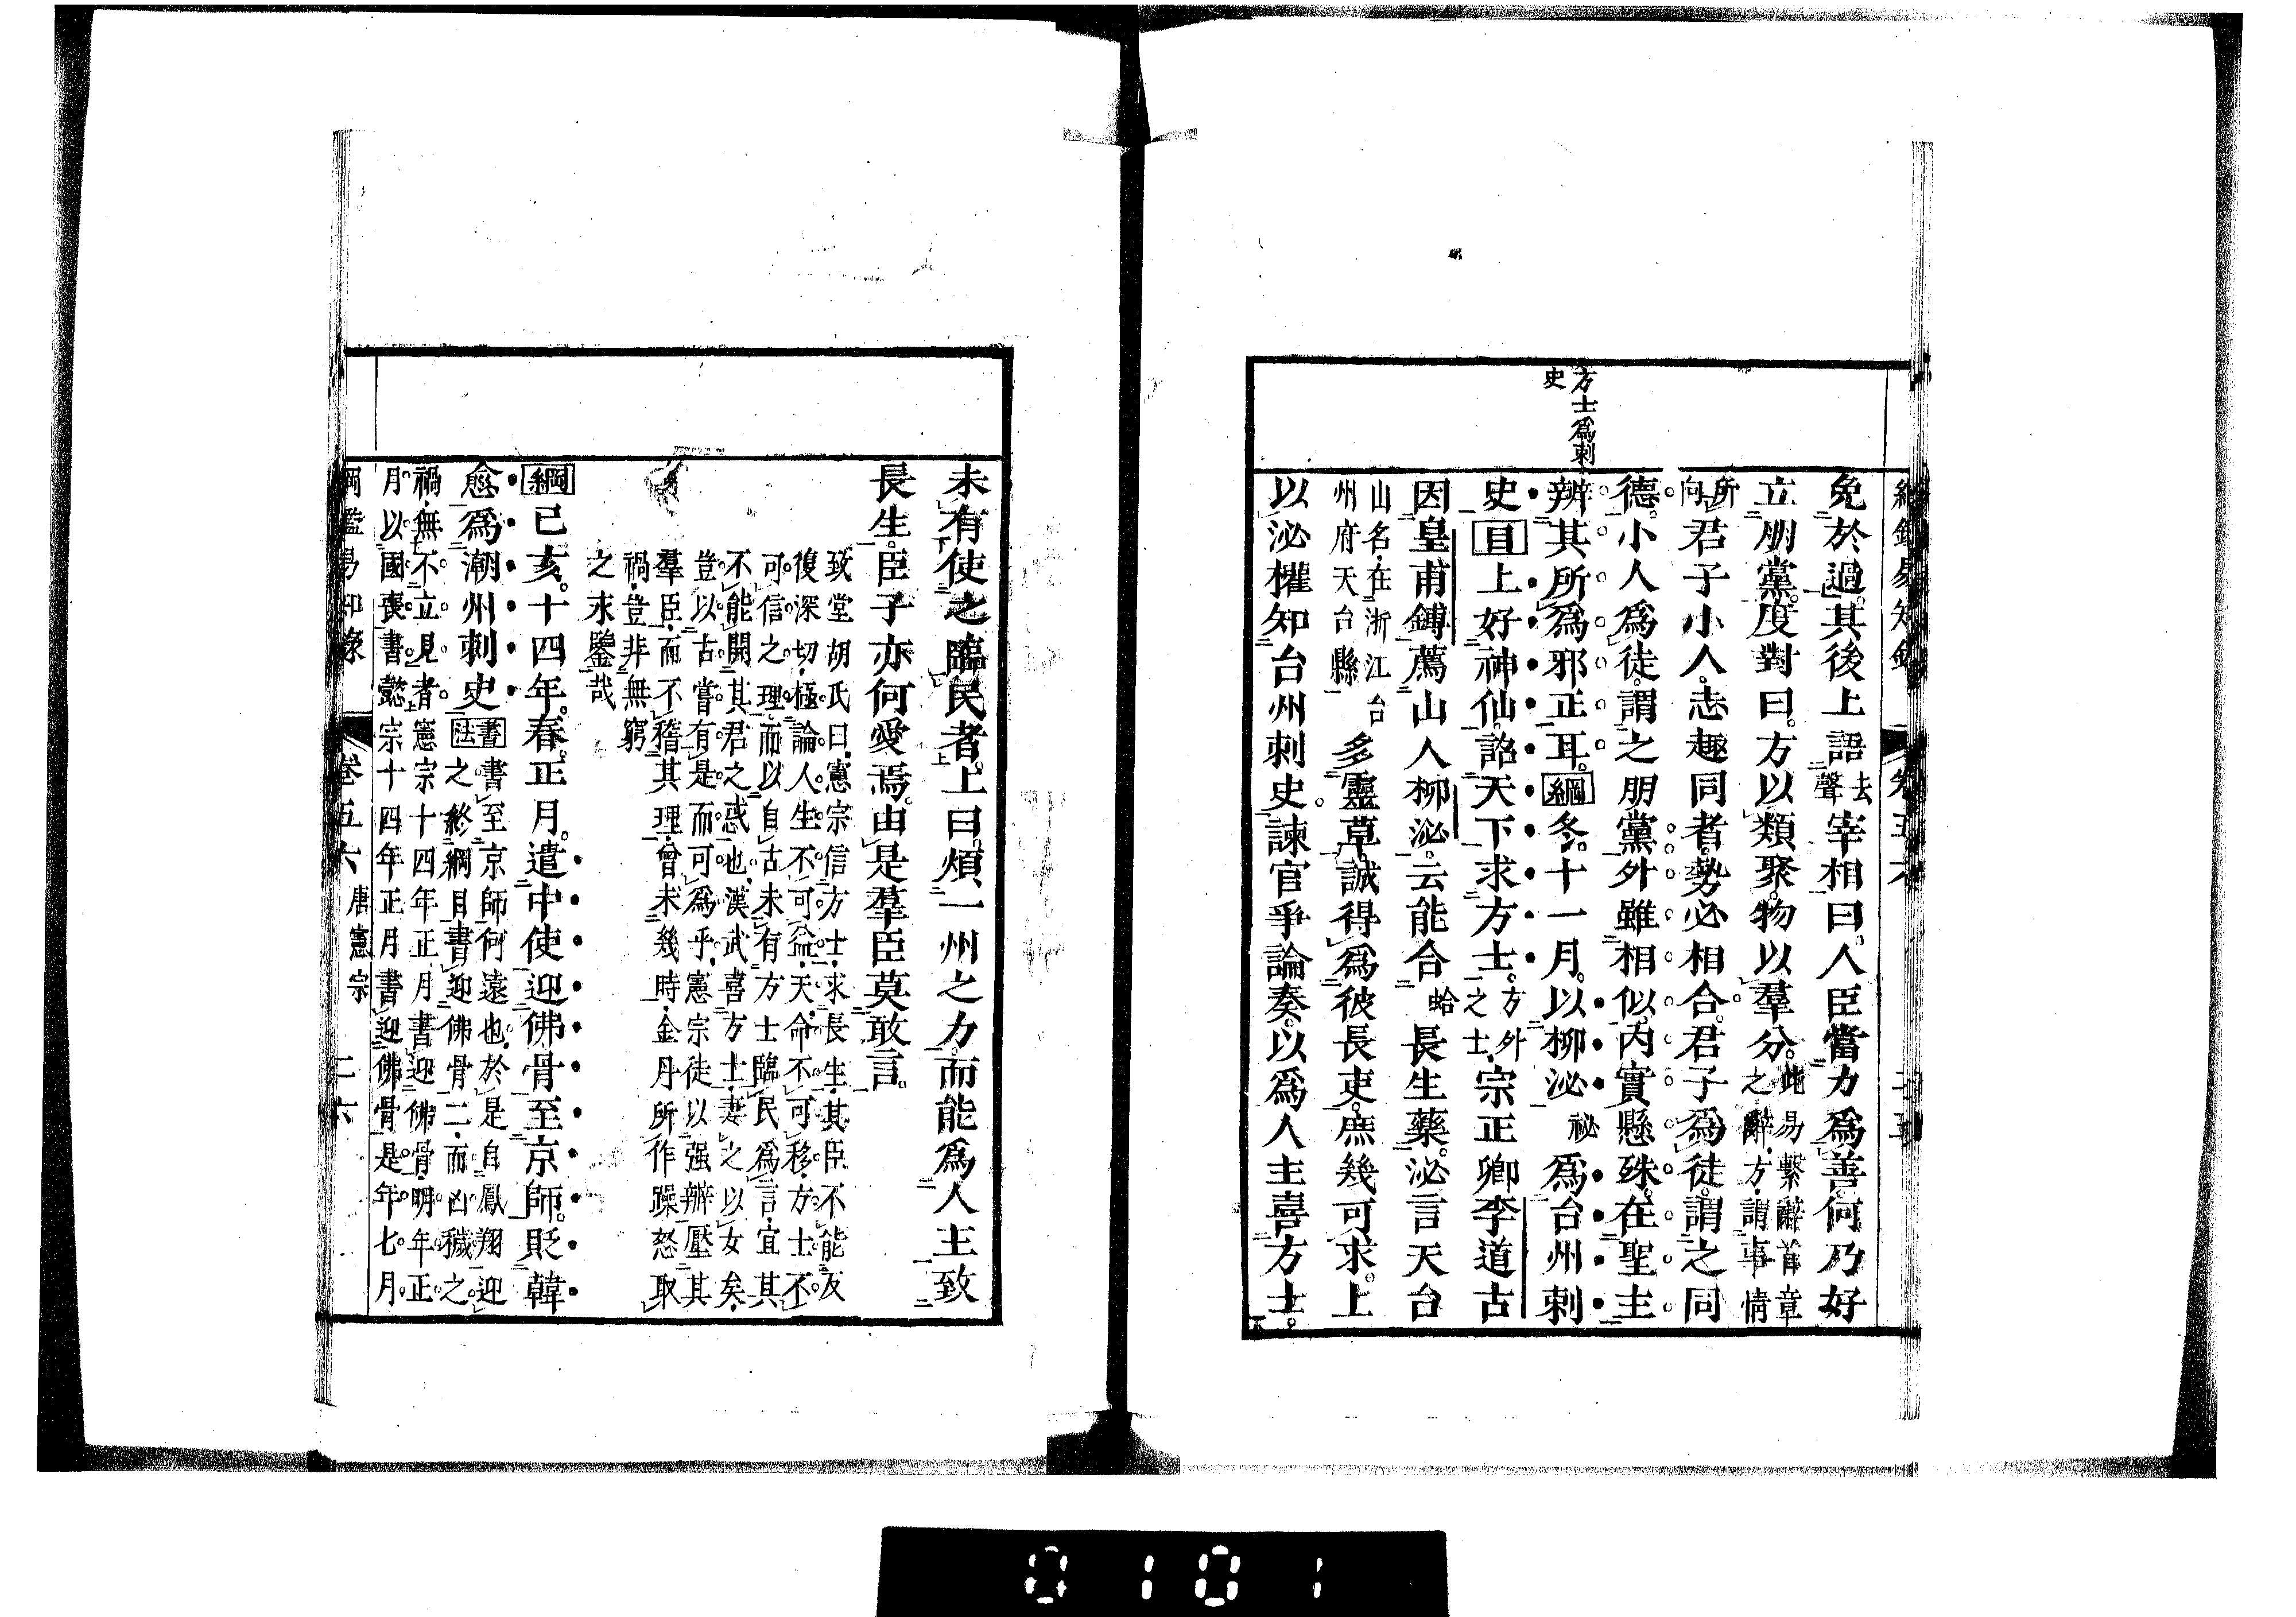 方士為刺
史
免於過其後上語去聲宰相曰人臣當力為善何乃好
立朋黨度對曰方以類聚物以羣分此易繫辭首章之辭方謂事情
所向君子小人志趣同者勢必相合君子為徒謂之同
德小人為徒謂之朋黨外雖相似內實懸殊在聖主
辨其所為邪正耳綱冬十一月以柳泌祕為台州刺
史目上好神仙詔天下求方士方外之士宗正卿李道古
因皇甫鎛薦山人柳泌云能合蛤長生藥泌言天台
山名在浙江台州府天台縣多靈草誠得為彼長吏庶幾可求上
以泌權知台州刺史諫官爭論奏以為人主喜方士
未有使之臨民者上曰煩一州之力而能為人主致
長生臣子亦何愛焉由是羣臣莫敢言
致堂胡氏曰憲宗信方士求長生其臣不能反
復深切極論人生不可益天命不可移方士不
可信之理而以自古未有方士臨民為言宜其
不能開其君之惑也漢武喜方士妻之以女矣
豈以古嘗有是而可為乎憲宗徒以强辯壓其
羣臣而不稽其理曾未幾時金丹所作躁怒取
禍豈非無窮
之永鑒哉
綱已亥十四年春正月遣中使迎佛骨至京師貶韓
愈為潮州刺史書法書至京師何遠也於是自鳳翔迎
之終綱目書迎佛骨二而凶穢之
禍無不立見者憲宗十四年正月書迎佛骨明年正
月以國喪書懿宗十四年正月書迎佛骨是年七月
綱鑑易知錄
卷五六
唐憲宗
二六
0101